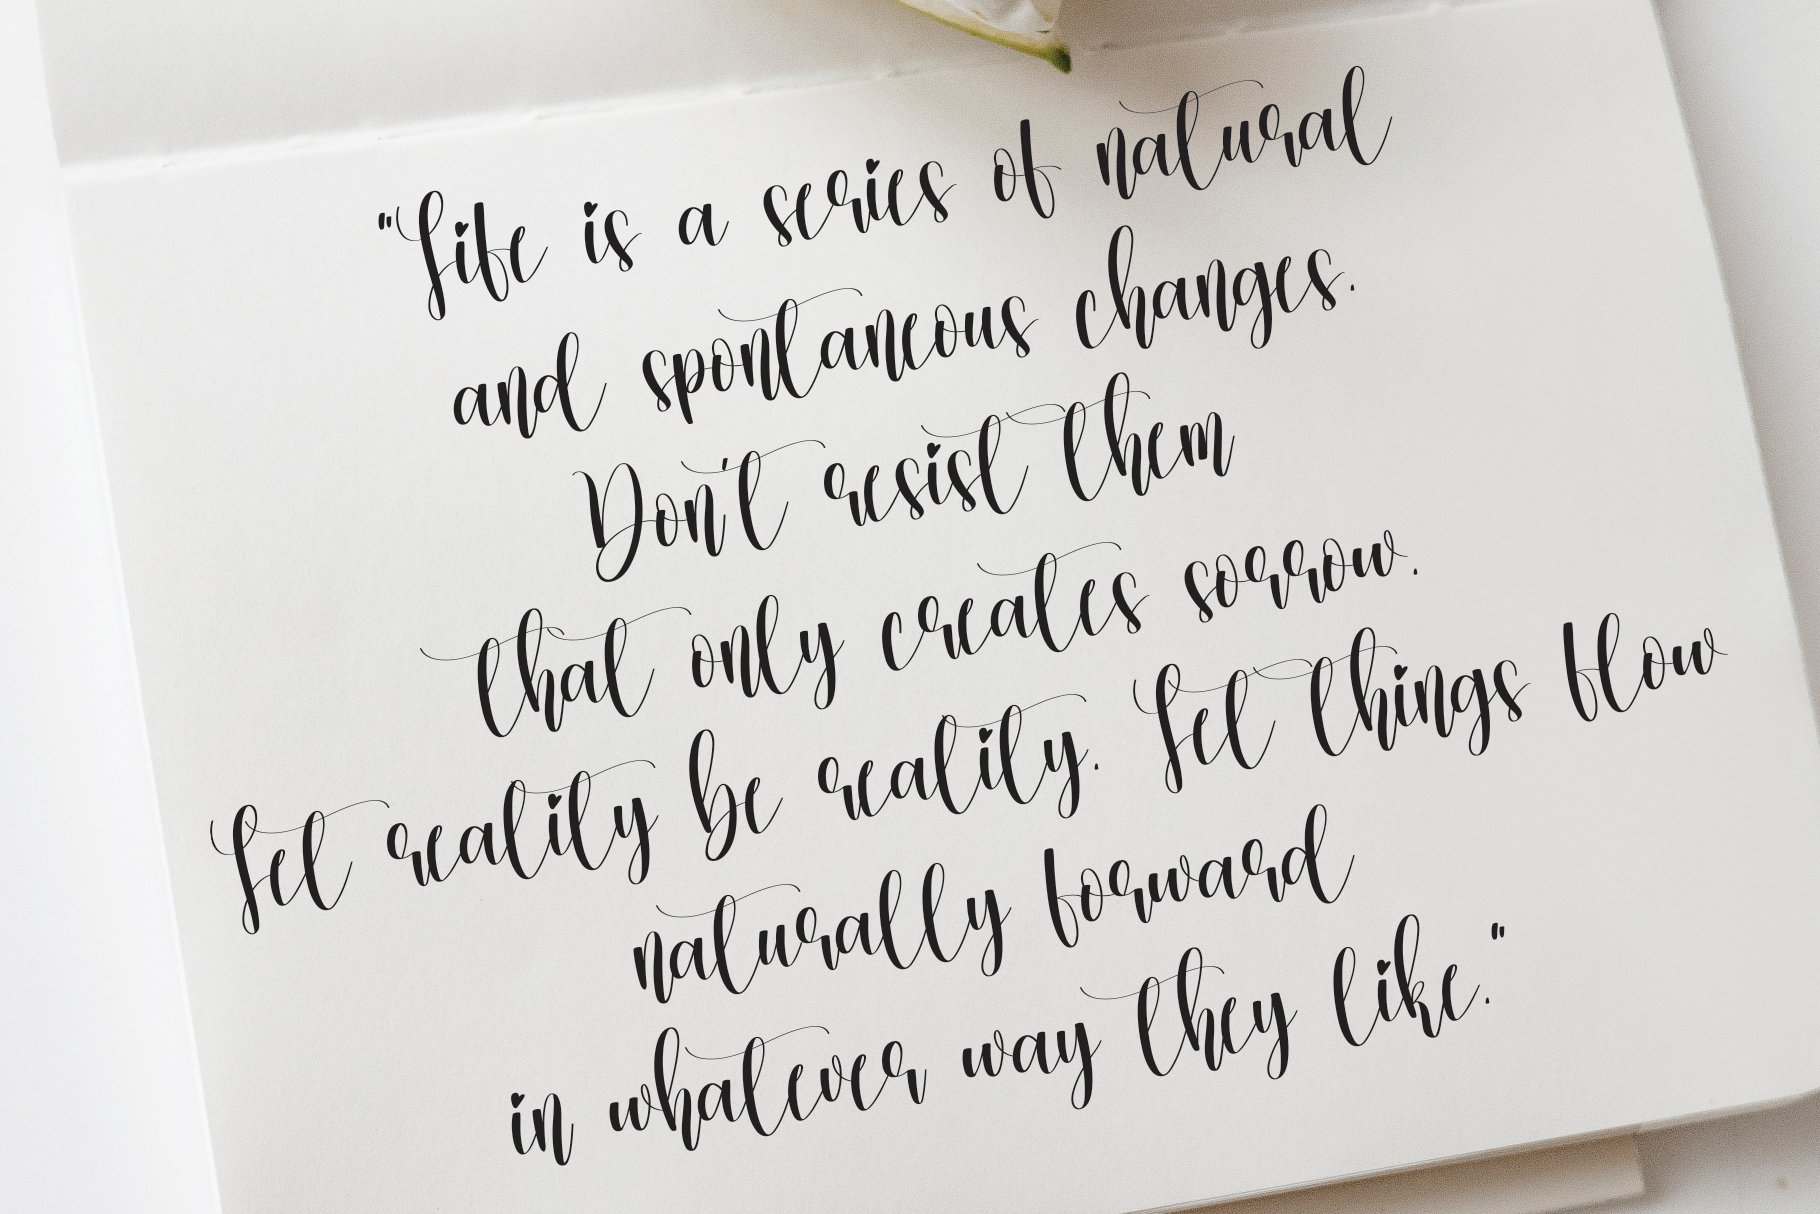 "Life is a series of natural
and spontaneous changes.
Don't resist them
that only creates sorrow.
Let reality be reality. Let things flow
naturally forward
in whatever way they like."